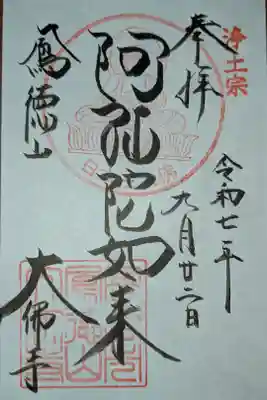 浄土宗
奉拝
令和七年
九月廿二日
阿弥陀如来
鳳徳山
大佛寺